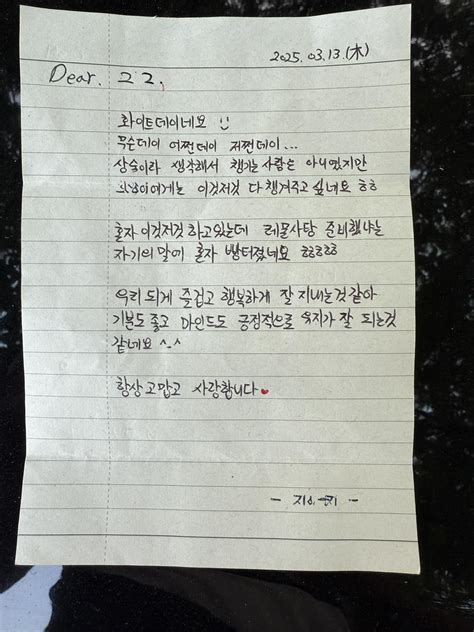 2025. 03. 13. (木)
Dear. 그그.
화이트데이네요 :)
무슨데이 어쩐데이 저쩐데이...
상술이라 생각해서 챙기는 사람은 아니였지만
에게는 이것저것 다 챙겨주고 싶네요 ㅎㅎ
혼자 이것저것 하고있는데 레몬사탕 준비했냐는
자기의 말에 혼자 빵터졌네요 ㅎㅎㅎㅎㅎ
우리 되게 즐겁고 행복하게 잘 지내는것 같아
기분도 좋고 마인드도 긍정적으로 유지가 잘 되는것
같네요 ^-^
항상 고맙고 사랑합니다♥